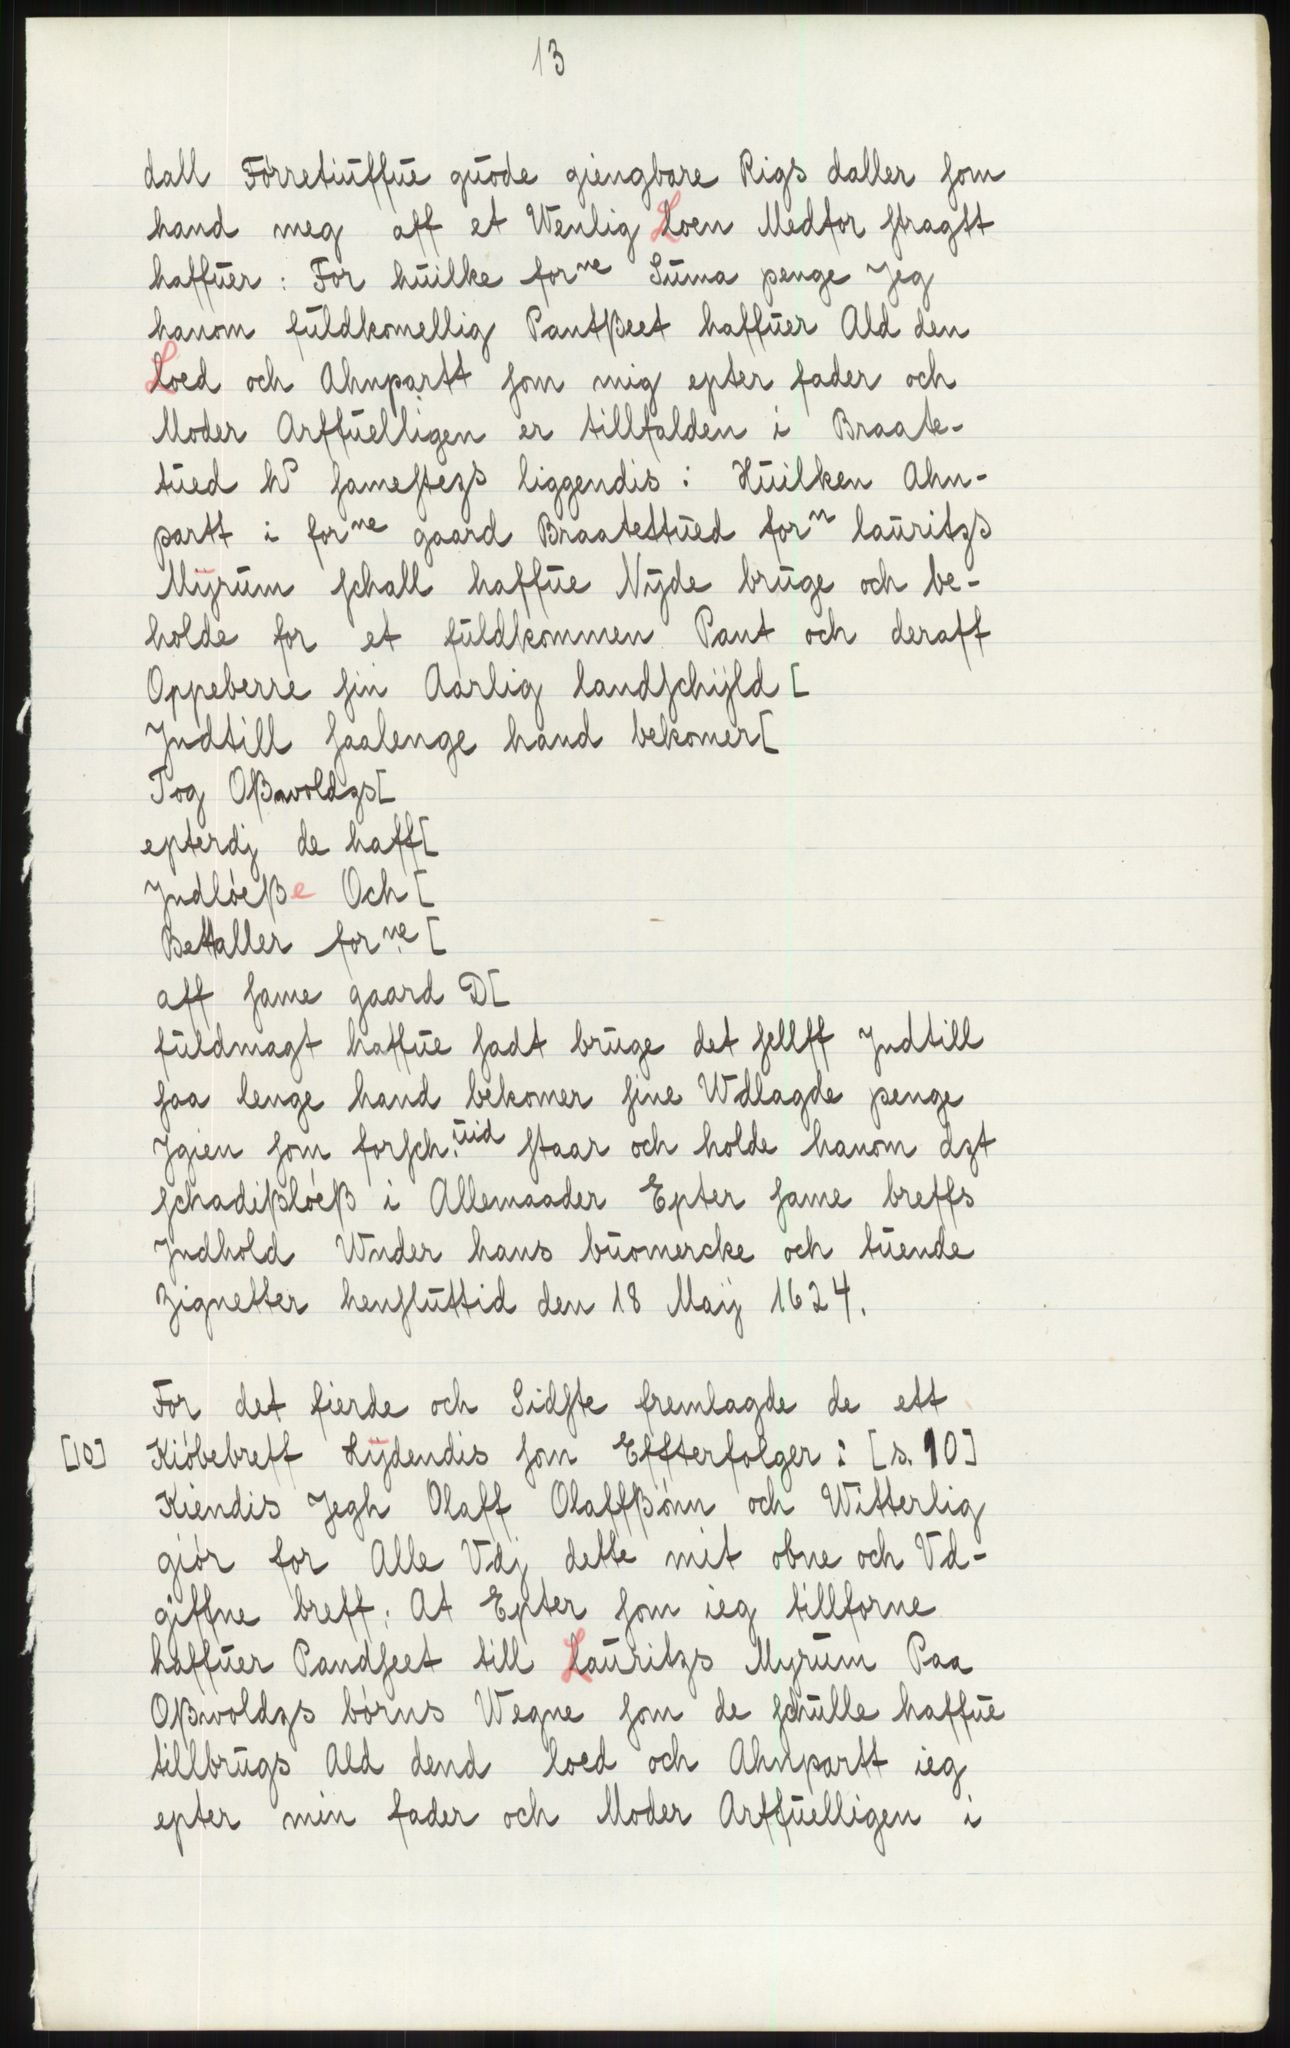 13
dall Förretiuffue guode giengbare Rigs daller som
hand meg aff et Wenlig Loen Medfor stragtt
haffuer: For huilke forne Suma penge Jeg
hanom fuldkomellig Pantßeet haffuer Ald den
Loed och Ahnpartt som mig epter fader och
Moder Arffuelligen er tillfalden i Braate-
tued hoß samestezs liggendis: Huilken Ahn-
partt i forne gaard Braatettued forn lauritzs
Mÿrum schall haffue Nyde bruge och be-
holde for et fuldkommen Pant och deraff
Oppeberre sin Aarlig landschÿld [
Jndtill saalenge hand bekomer[
Tog Oßwoldzs[
epterdj de haff[
Jndlöeße Och [
Bettaller forne [
aff same gaard D[
fuldmagt haffue sadt bruge det sellff Jndtill
saa lenge hand bekomer sine Wdlagde penge
Jgien som forsch. uid staar och holde hanom dzt
schadißlöeß i Allemaader Epter same breffs
Jndhold Wnder hans buomercke och tuende
Zignetter hensluttid den 18 Maij 1624.
For det fierde och Sidste fremlagde de ett
[10] Kiöbebreff Lÿdendis som Effterfolger: [s. 10]
Kiendis Jegh Olaff Olaffßönn och Witterlig
giör for Alle Vdj dette mit obne och Vd-
giffne breff. At Epter som ieg tillforne
haffuer Pandseet till Lauritzs Myrum Paa
Oßwoldzs börns Wegne som de schulle haffue
tillbrugs Ald dend loed och Ahnpartt ieg
epter min fader och Moder Arffuelligen i